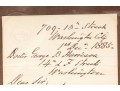 709 - 12th Street
Washington City
1st Apr 1885.
Doctor George B. Harrison
Washington
Dear Sir,